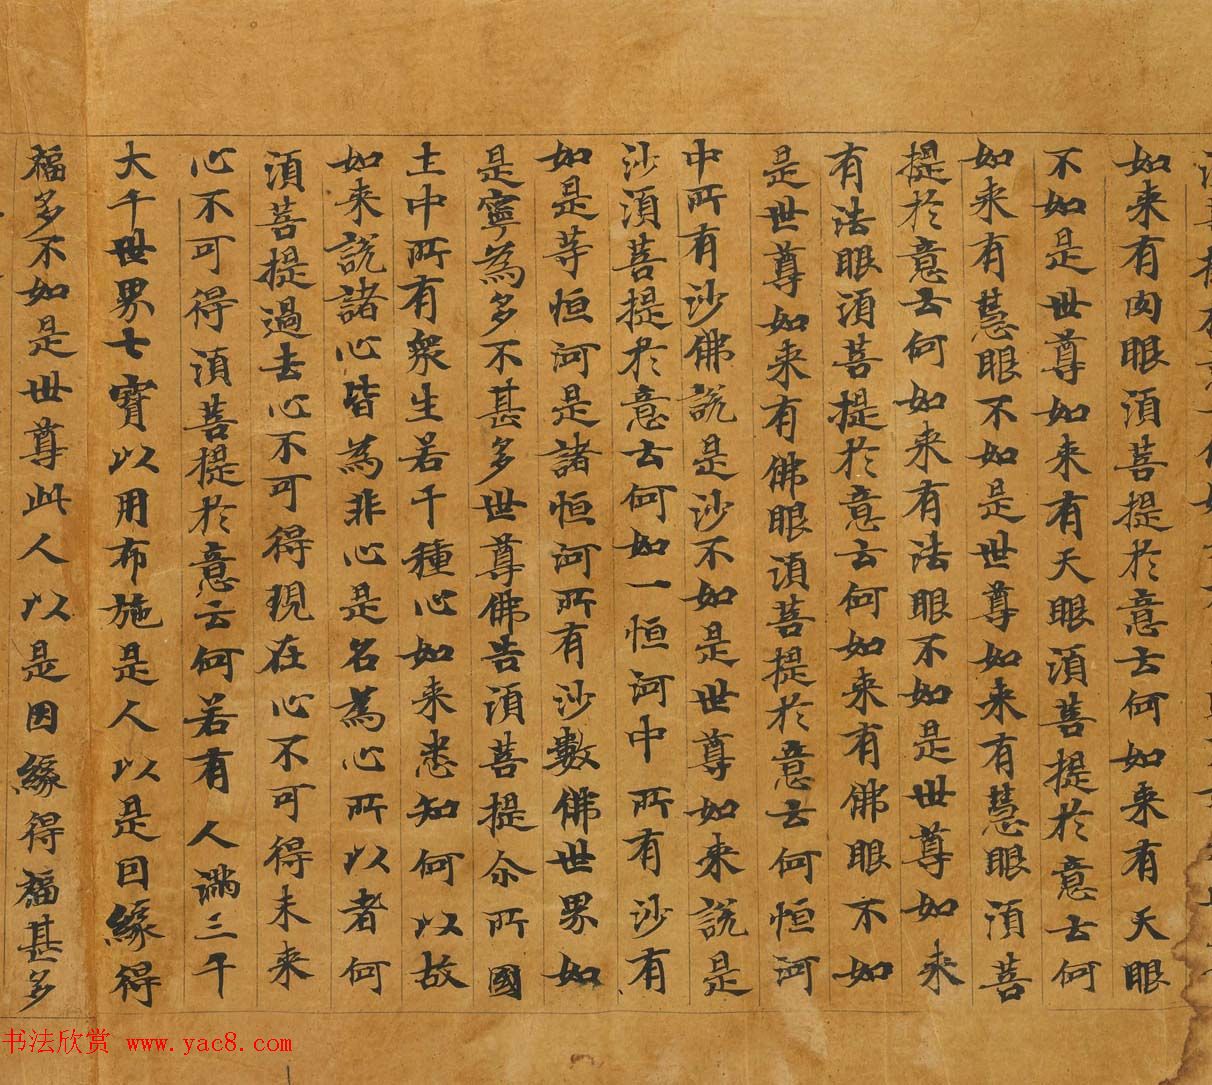 如来有肉眼須菩提於意云何如来有天眼
不如是世尊如来有天眼須菩提於意云何
如来有慧眼不如是世尊如来有慧眼須菩
提於意云何如来有法眼不如是世尊如来
有法眼須菩提於意云何如来有佛眼不如
是世尊如来有佛眼須菩提於意云何恒河
中所有沙佛說是沙不如是世尊如来說是
沙須菩提於意云何如一恒河中所有沙有
如是等恒河是諸恒河所有沙數佛世界如
是寧為多不甚多世尊佛告須菩提尒所國
土中所有衆生若干種心如来悉知何以故
如来說諸心皆為非心是名為心所以者何
須菩提過去心不可得現在心不可得未来
心不可得須菩提於意云何若有人滿三千
大千世界七寶以用布施是人以是因緣得
福多不如是世尊此人以是因緣得福甚多
书法欣赏 www.yac8.com